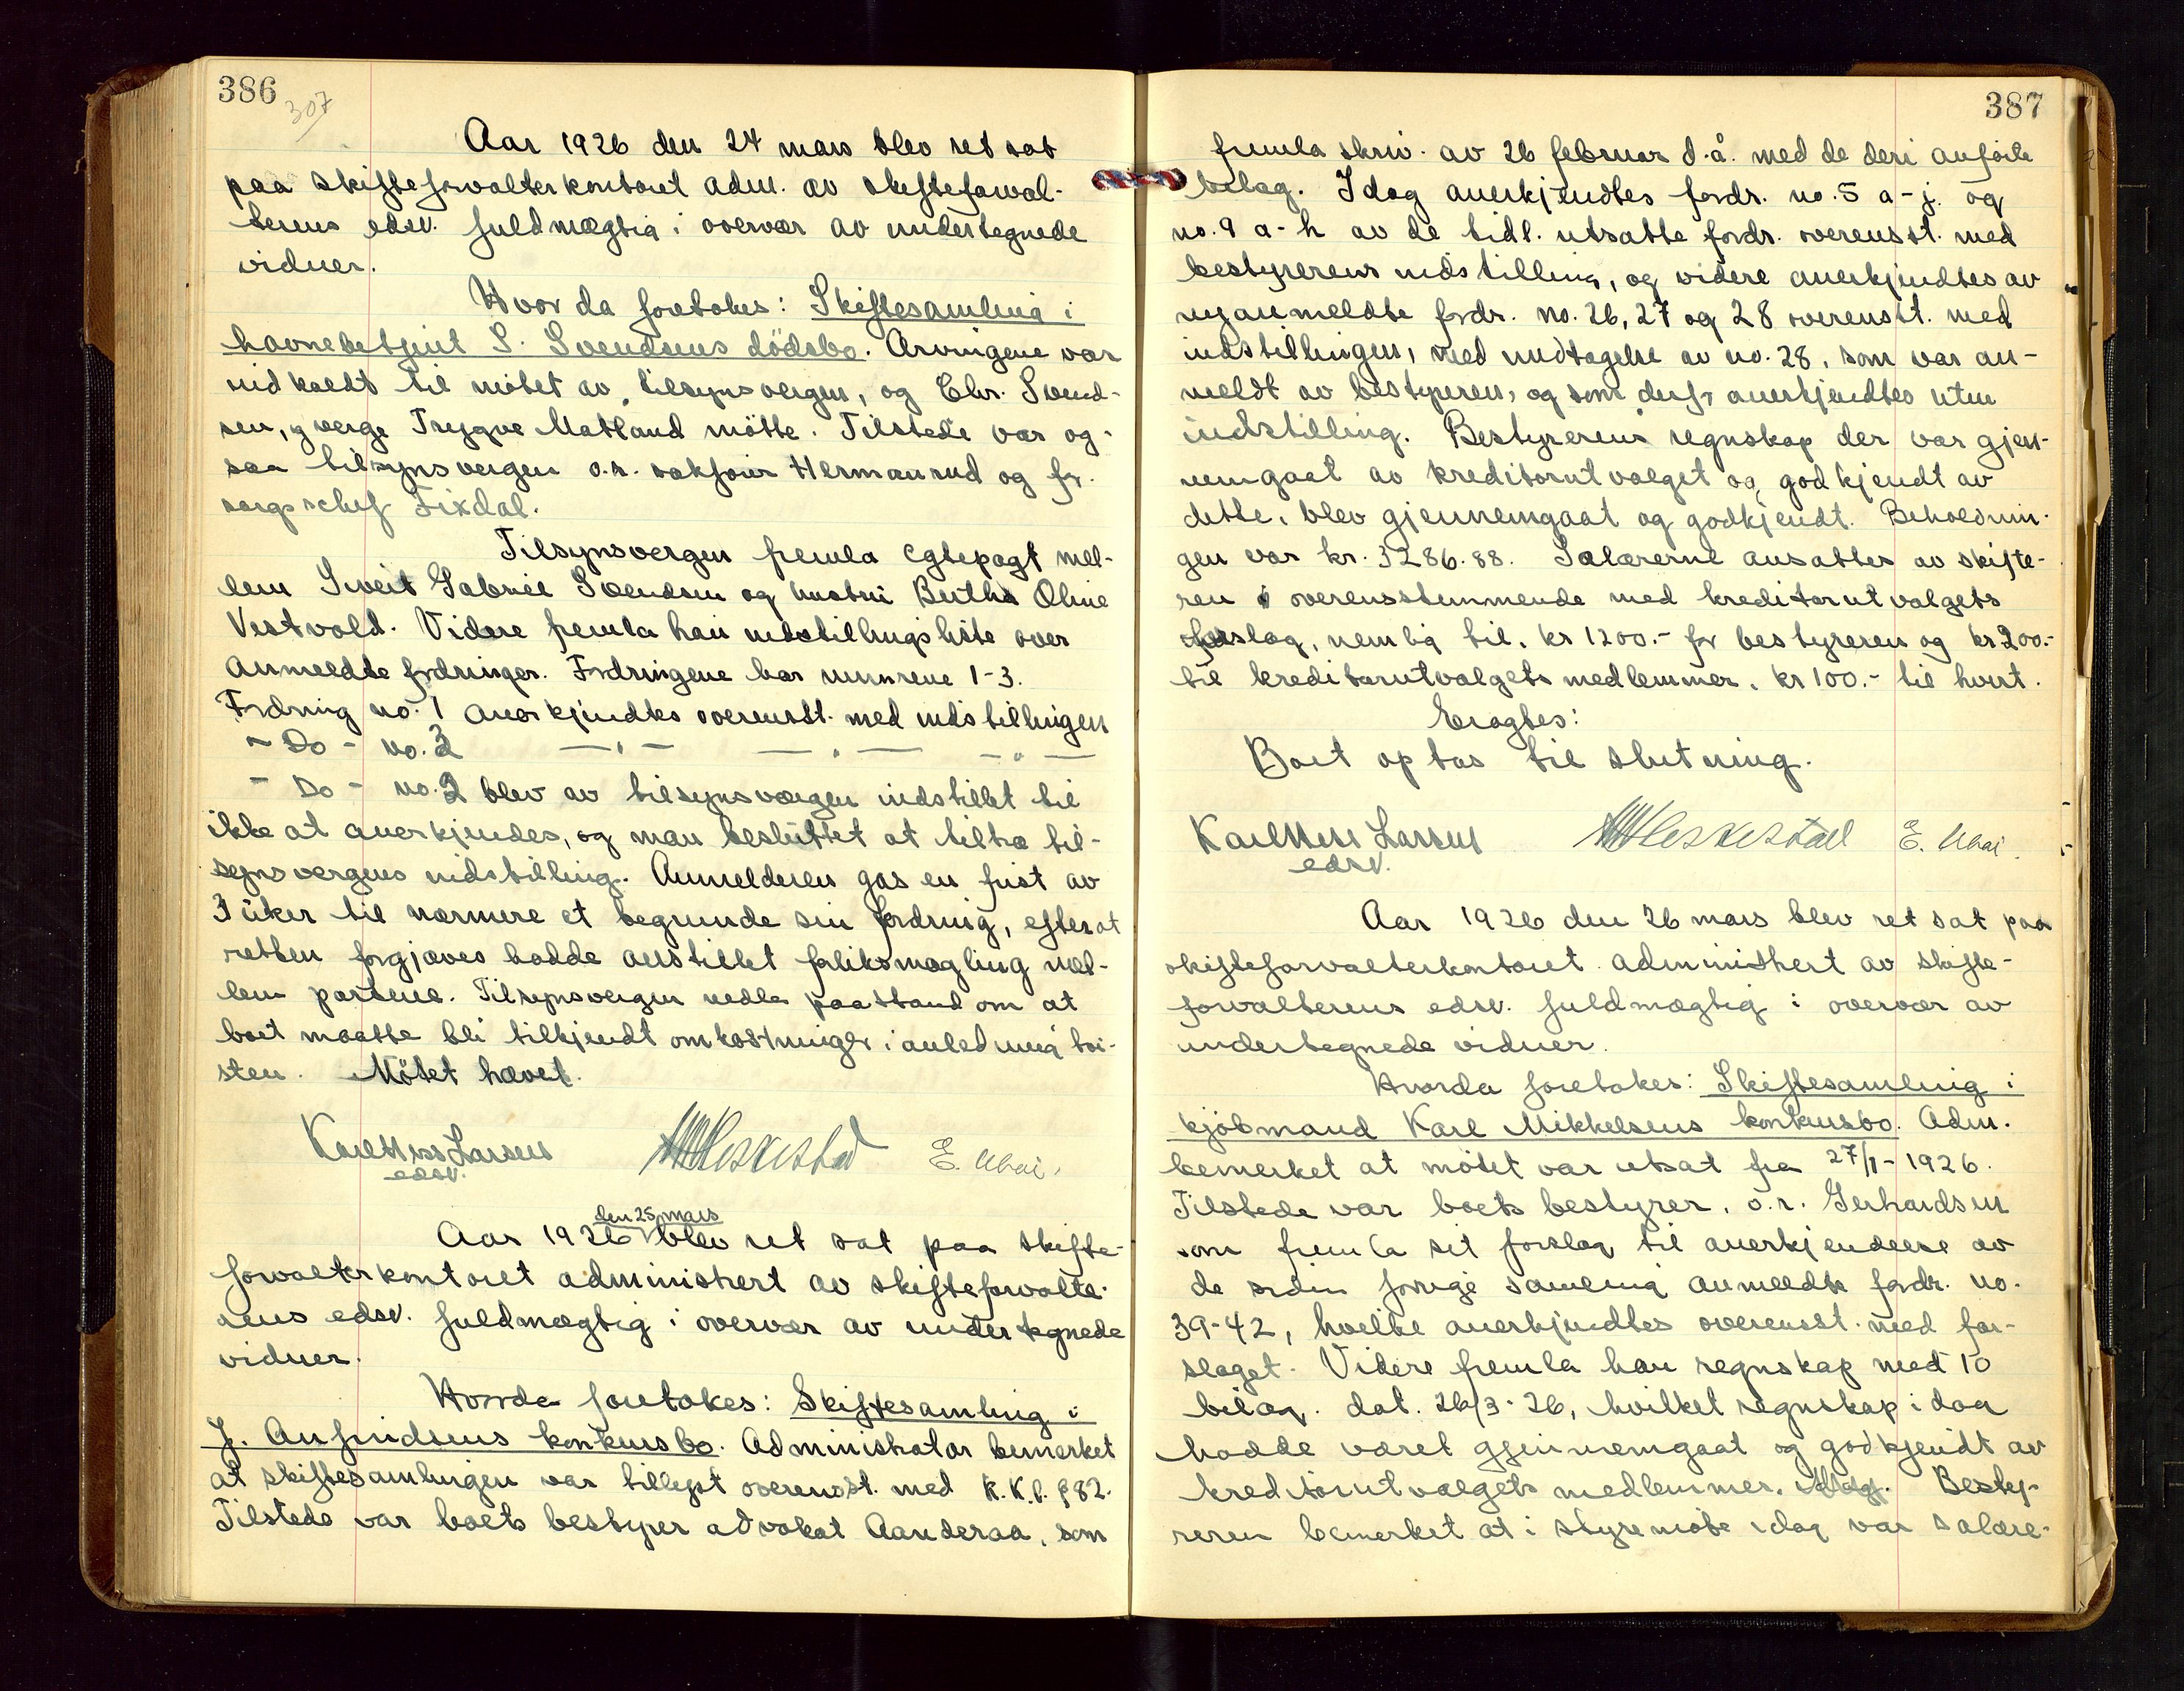 386
307
Aar 1926 den 24 mars blev ret sat
paa skifteforvalterkontoret adm. av skifteforval-
terens edsv. fuldmægtig i overvær av undertegnede
vidner.
Hvor da foretokes: Skiftesamling i
havnebetjent S. Svendsens dödsbo. Arvingene var
indkaldt til mötet av tilsynsvergen, og Chr. Svend-
sen, g verge Trygve Matland mötte. Tilstede var og-
saa tilsynsvergen o.r. sakförer Hermanrud og for-
sorgschef Fixdal.
Tilsynsvergen fremla egtepagt mel-
lem Sveit Gabriel Svendsen og hustru Bertha Oline
Vestvold. Videre fremla han indstillingsliste over
anmeldte fordringer. Fordringene har numrene 1-3.
Fordring no. 1 anerkjendtes overensst. med indstillingen
- Do - no. 3 — " — — " — — " —
- Do - no. 2 blev av tilsynsvergen indstillet til
ikke at anerkjendes, og man besluttet at tiltræ til-
synsvergens indstilling. Anmelderen gas en frist av
3 uker til nærmere et begrunde sin fordring, efter at
retten forgjæves hadde anstillet forliksmægling mel-
lem partene. Tilsynsvergen nedla paastand om at
boet maatte bli tilkjendt omkostninger i anledning tvi-
sten. Mötet hævet.
Karl Hess Larsen
edsv.
Heskestad
E.
den 25 mars
Aar 1926 blev ret sat paa skifte-
forvalterkontoret administrert av skifteforvalte-
rens edsv. fuldmægtig i overvær av undertegnede
vidner.
Hvorda foretokes: Skiftesamling i
J. Anfindsens konkursbo. Administrator bemerket
at skiftesamlingen var tillyst overensst. med K.K.l. §82.
Tilstede var boets bestyrer advokat Aanderaa, som
387
fremla skriv. av 26 februar d.å. med de deri anförte
bilag. Idag anerkjendtes fordr. no. 5 a-j. og
no. 9 a-h av de tidl. utsatte fordr. overensst. med
bestyrerens indstilling, og videre anerkjendtes av
nyanmeldte fordr. no. 26, 27 og 28 overensst. med
indstillingen, med undtagelse av no. 28, som var an-
meldt av bestyreren, og som derfor anerkjendtes uten
indstilling. Bestyrerens regnskap der var gjen-
nemgaat av kreditorutvalget og godkjendt av
dette, blev gjennemgaat og godkjendt. Beholdnin-
gen var kr. 3286.88. Salærerne ansattes av skifte-
ren overensstemmende med kreditorutvalgets
forslag, nemlig til, kr 1200.- for bestyreren og kr 200.-
til kreditorutvalgets medlemmer, kr 100.- til hvert.
Eragtes:
Boet optas til slutning.
Karl Hess Larsen
edsv.
Heskestad
E.
Aar 1926 den 26 mars blev ret sat paa
skifteforvalterkontoret administrert av skifte-
forvalterens edsv. fuldmægtig i overvær av
undertegnede vidner.
Hvorda foretokes: Skiftesamling i
kjöbmand Karl Mikkelsens konkursbo. Adm.
bemerket at mötet var utsat fra 27/1-1926.
Tilstede var boets bestyrer, o.r. Gerhardsen
som fremla sit forslag til anerkjendelse av
de siden forrige samling anmeldte fordr. no.
39-42, hvilke anerkjendtes overensst. med for-
slaget. Videre fremla han regnskap med 10
bilag. dat. 26/3-26, hvilket regnskap idag
hadde været gjennemgaat og godkjendt av
kreditorutvalgets medlemmer. Besty-
reren bemerket at i styremöte idag var salære-